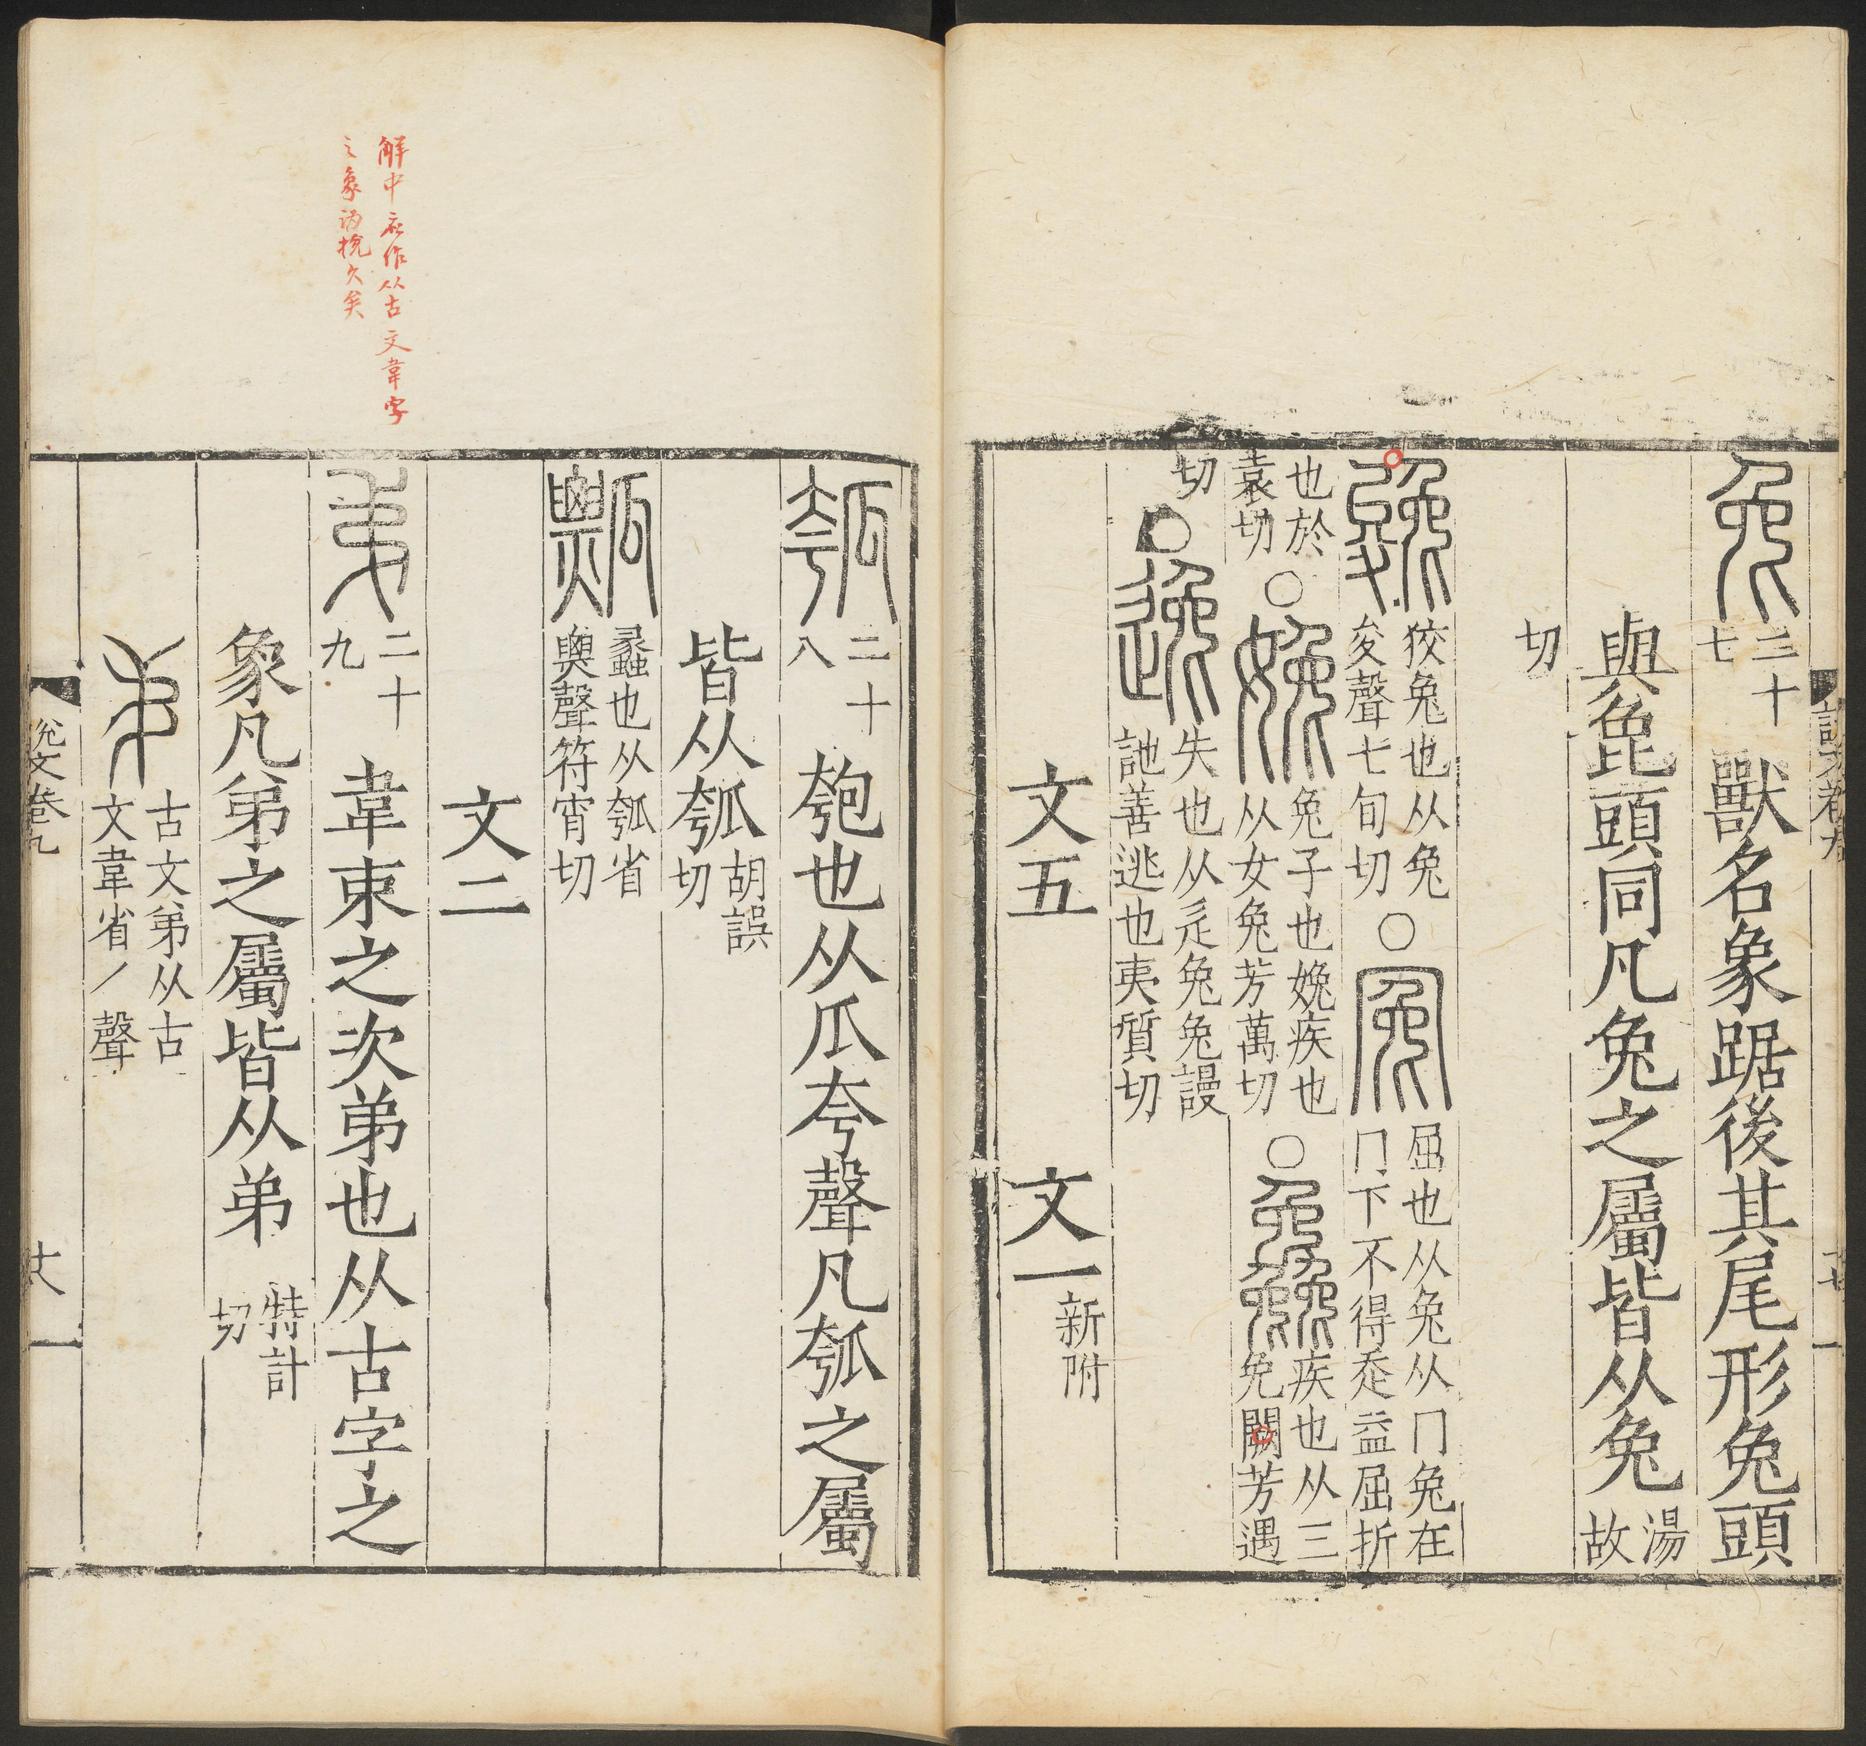 說文卷九
十七
兔 二十七 獸名象踞後其尾形兔頭
與㲋頭同凡兔之屬皆从兔 湯故
切
㕙 狡兔也从兔夋聲七旬切 ○ 冤 屈也从兔从冂兔在冂下不得走益屈折
也於袁切 ○ 娩 兔子也娩疾也从女兔芳萬切 ○ 鱻 疾也从三兔闕芳遇
切 ○ 逸 失也从辵兔兔謾訑善逃也夷質切
文五 文一 新附
瓠 二十八 匏也从瓜夸聲凡瓠之屬
皆从瓠 胡誤切
瓢 蠡也从瓠省㶾聲符宵切
文二
弟 二十九 韋束之次弟也从古字之
象凡弟之屬皆从弟 特計切
古文弟从古文韋省丿聲
說文卷九
十八
解中應作从古文韋字
之象譌挩久矣